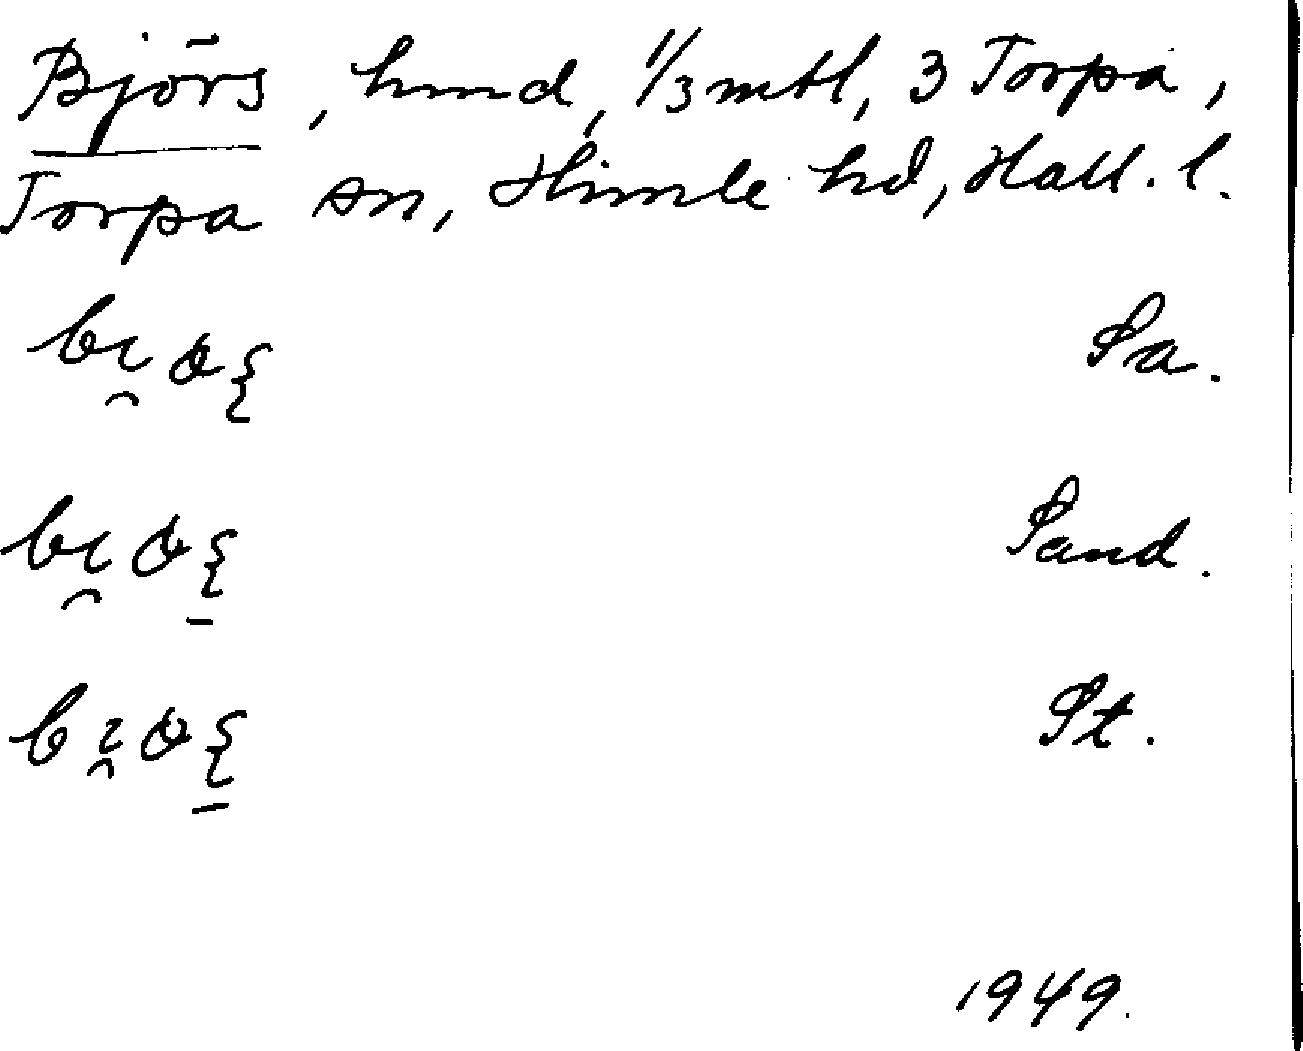 Björs, hmd, 1/3 mtl, 3 Torpa,
Torpa sn, Himle hd, Hall. l.
Sa.
Sand.
St.
1949.